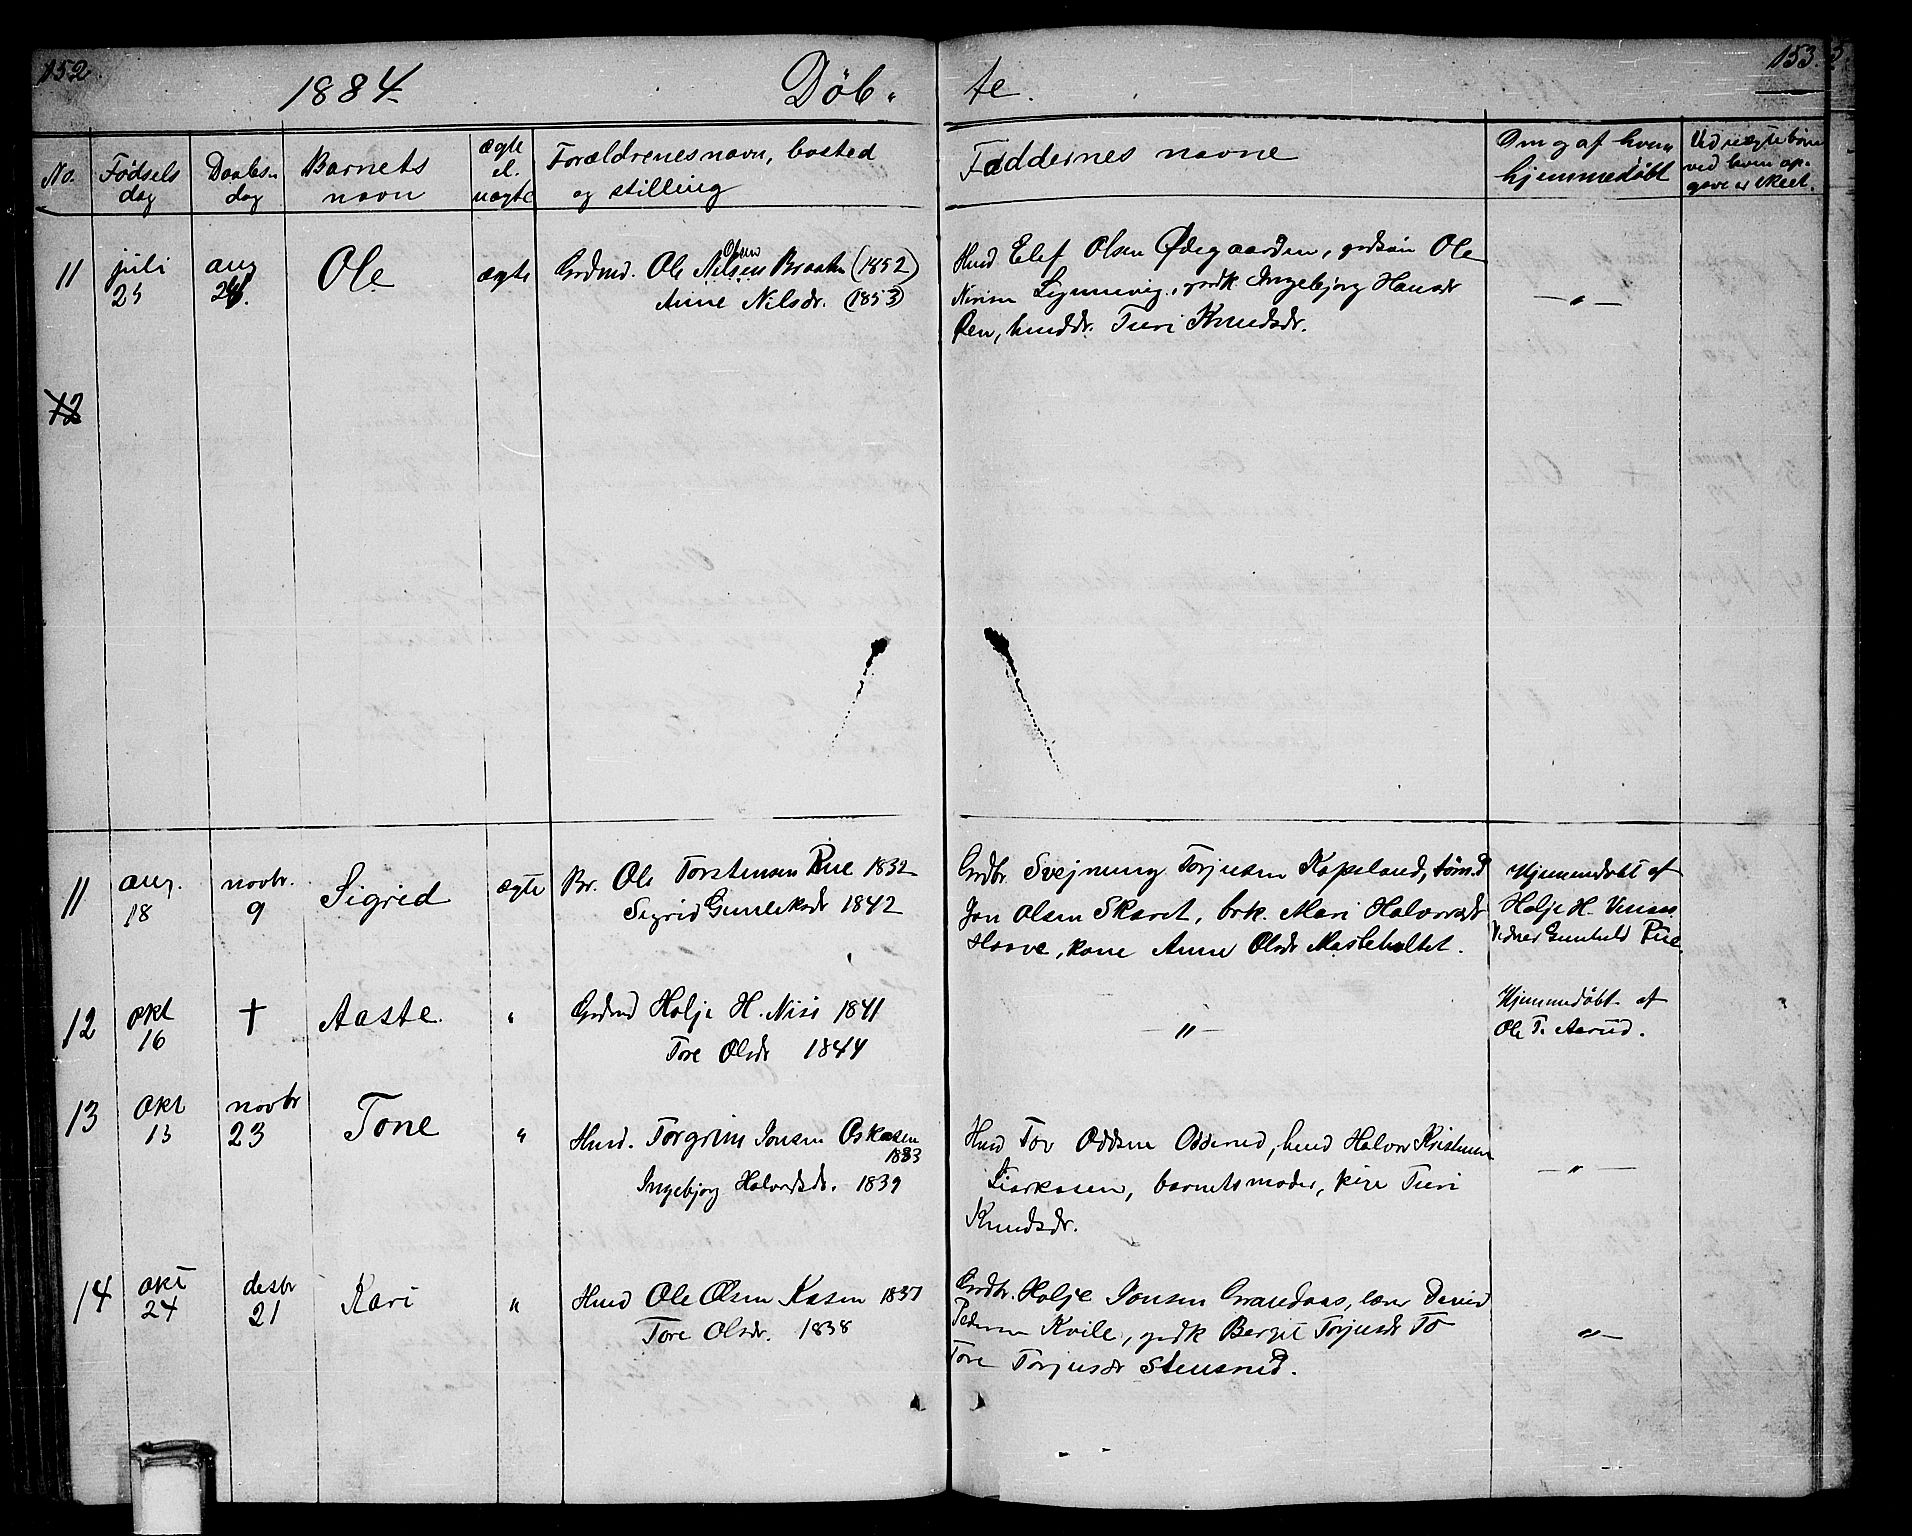 152
1884
Døb-
te.
153.
No.
Fødsels
dag
Daabs-
dag
Barnets
navn
ægte
el.
uægte
Forældrenes navn, bosted
og stilling
Faddernes navne
Om og af hvem
hjemmedøbt
Ved uægte børn
ved hvem op-
gave er skeet.
11
juli
25
aug
24
Ole
ægte
Grdmd. Ole Nilsen Braaten (1852)
Olsen
Anne Nilsdr. (1853)
Husd Elef Olsen Ødegaarden, grdsøn Ole
Nirisen, grdk. Ingebjorg Hansdr
Øen, husdr. Turi Knudsdr.
— „ —
12
11
aug.
18
novbr.
9
Sigrid
ægte
Br. Ole Torstensen Rue 1832
Sigrid Gunleksdr 1842
Grdbr. Svejnung Torjusen Kapeland, tømd
Jon Olsen Skaret, brk. Mari Halvorsdr
Haave, kone Anne Olsdr Masteholtet.
Hjemmedøbt af
Halje H.
Vidner Gunhild Rue
12
okt
16
†
Aaste.
„
Grdmd Halje H. Nisi 1841
Tore Olsdr 1844
— „ —
Hjemmedøbt af
Ole T. Aarud.
13
Okt
13
novbr
23
Tone
„
Husd. Torgrim Jonsen Oskasen
1883
Ingebjorg Halvordsdr. 1839
Husd Tov Oddsen Odderud, husd Halvor Kristensen
Liarkasen, barnets moder, pige Turi
Knudsdr.
— „ —
14
okt
24
desbr
21
Kari
„
Husd Ole Olsen Kasen 1837
Tore Olsdr. 1838
Grdbr. Halje Jonsen Grandaas, lærer Daniel
Pedersen Kvile, grdk Bergit Torjusdr To
Tore Torjusdr Stensrud.
„ —